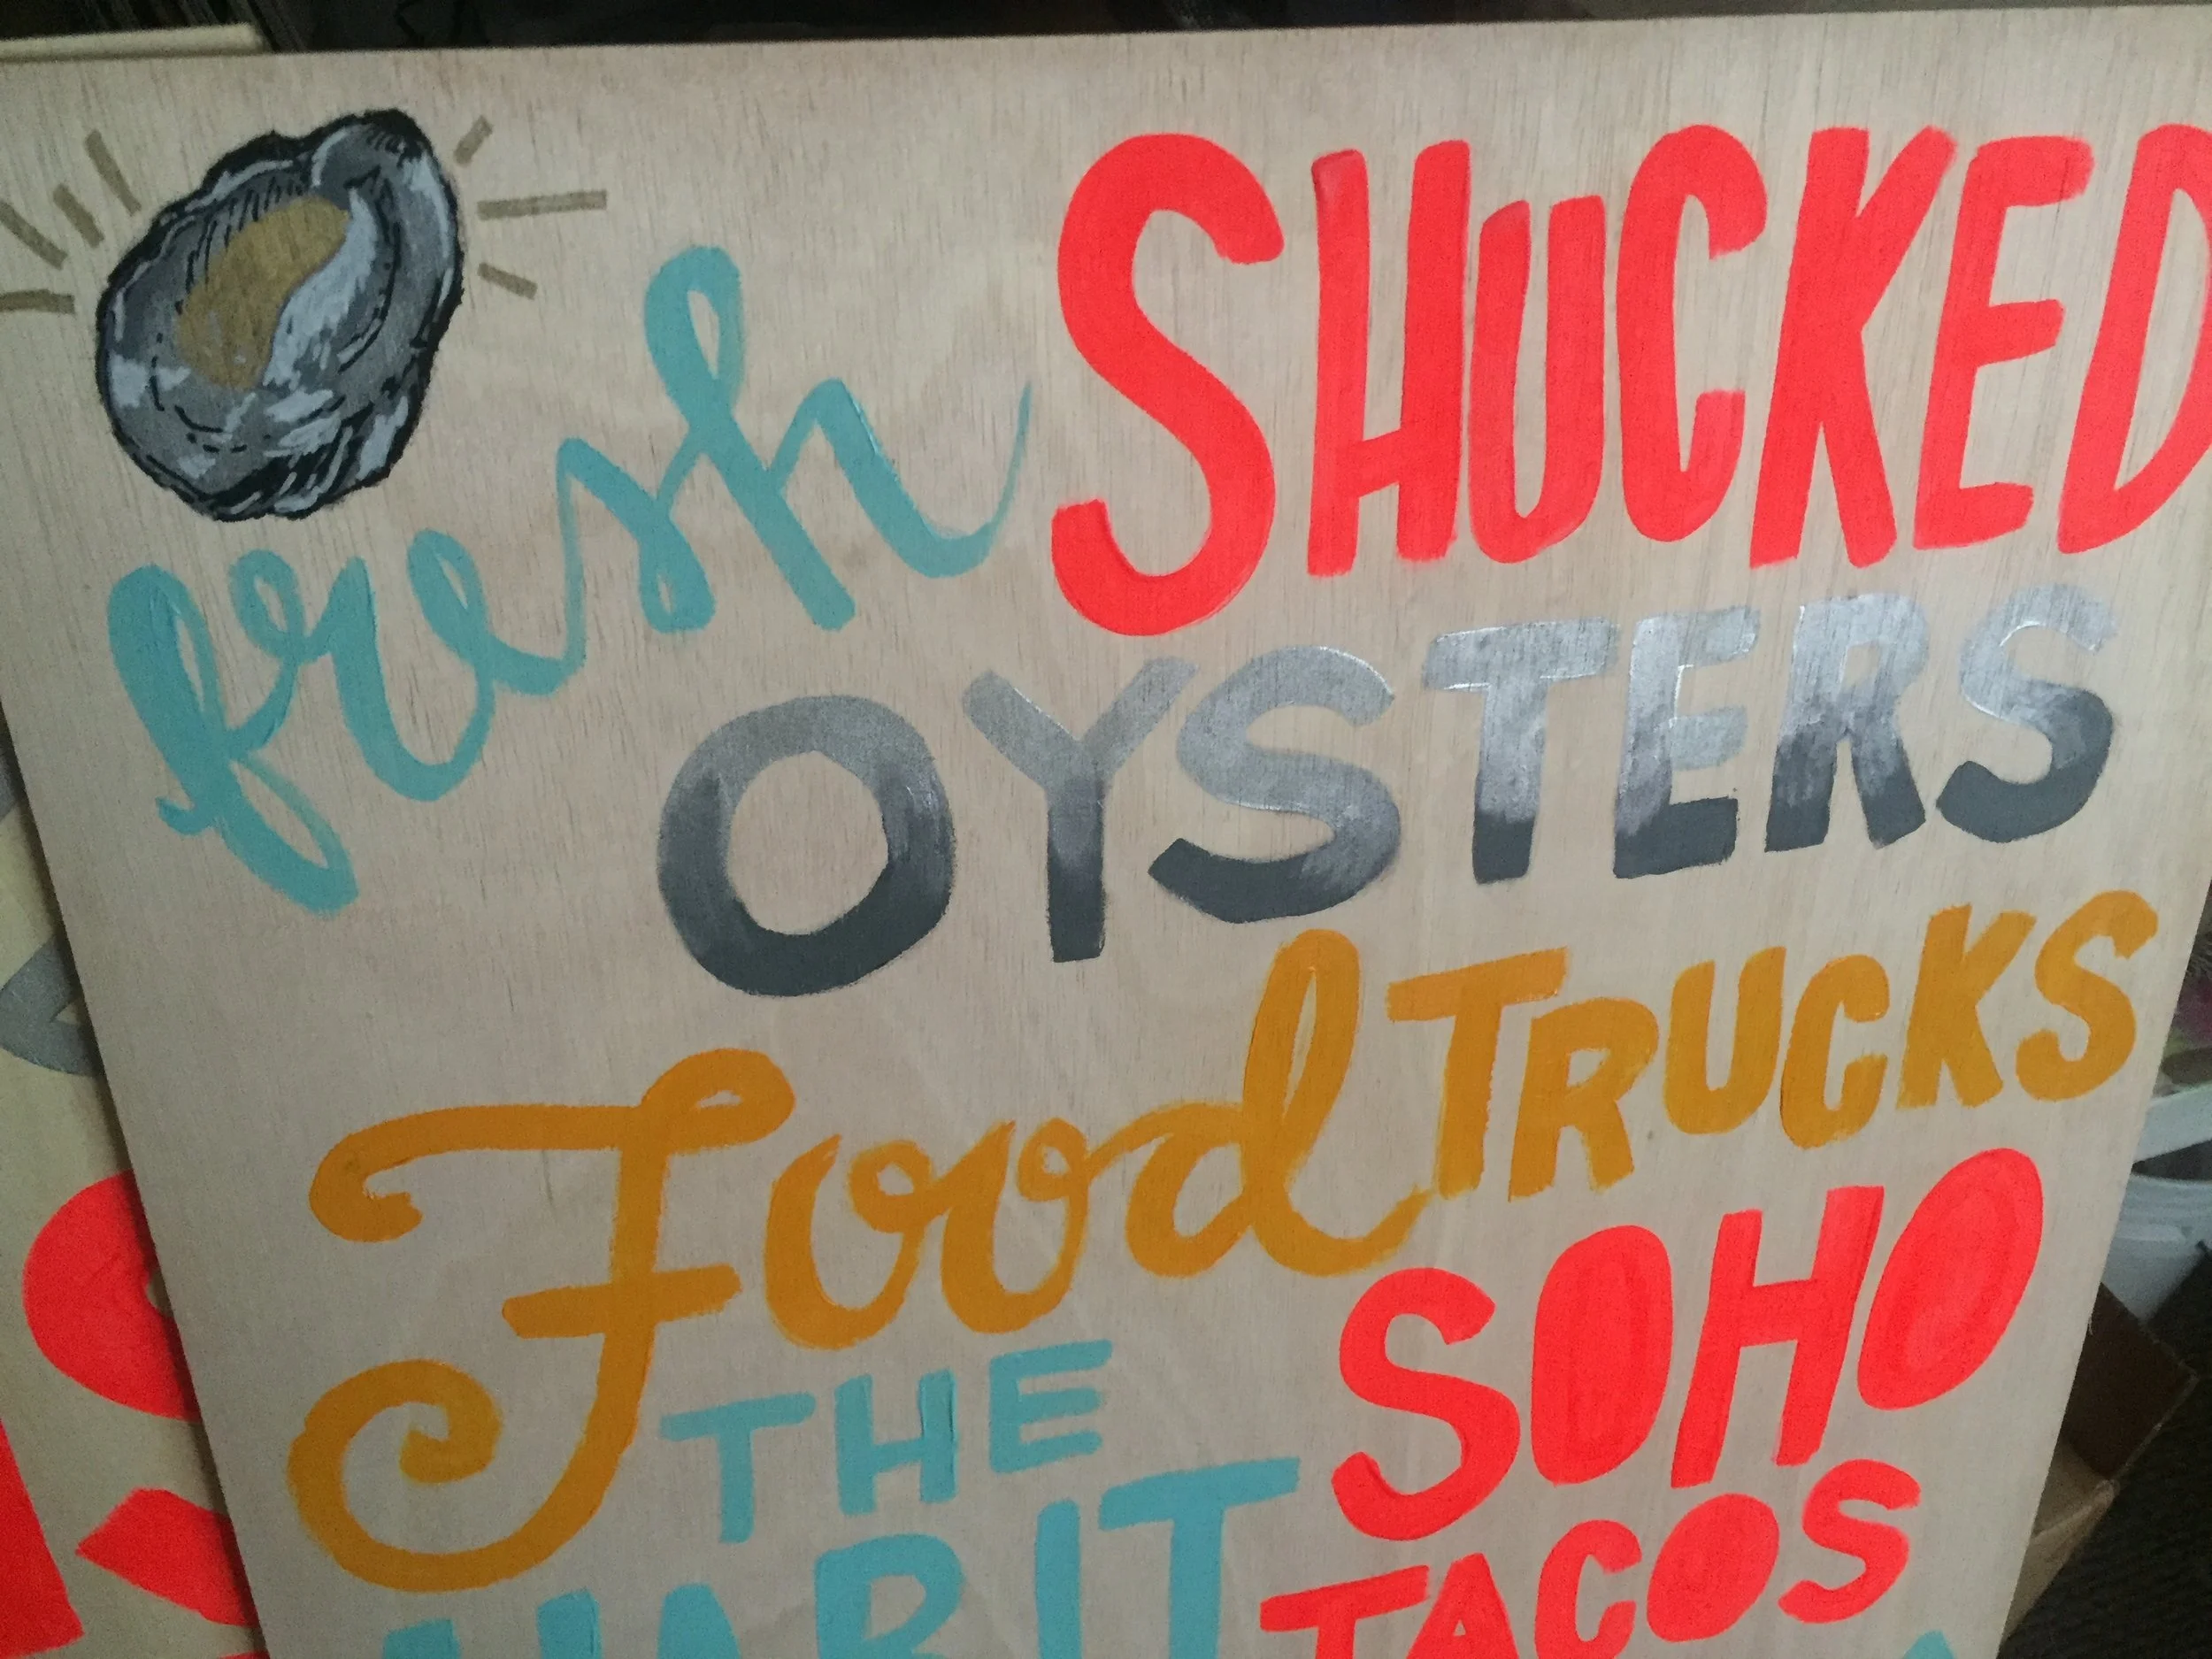 fresh SHUCKED
OYSTERS
Food TRUCKS
THE
HABIT
SOHO
TACOS